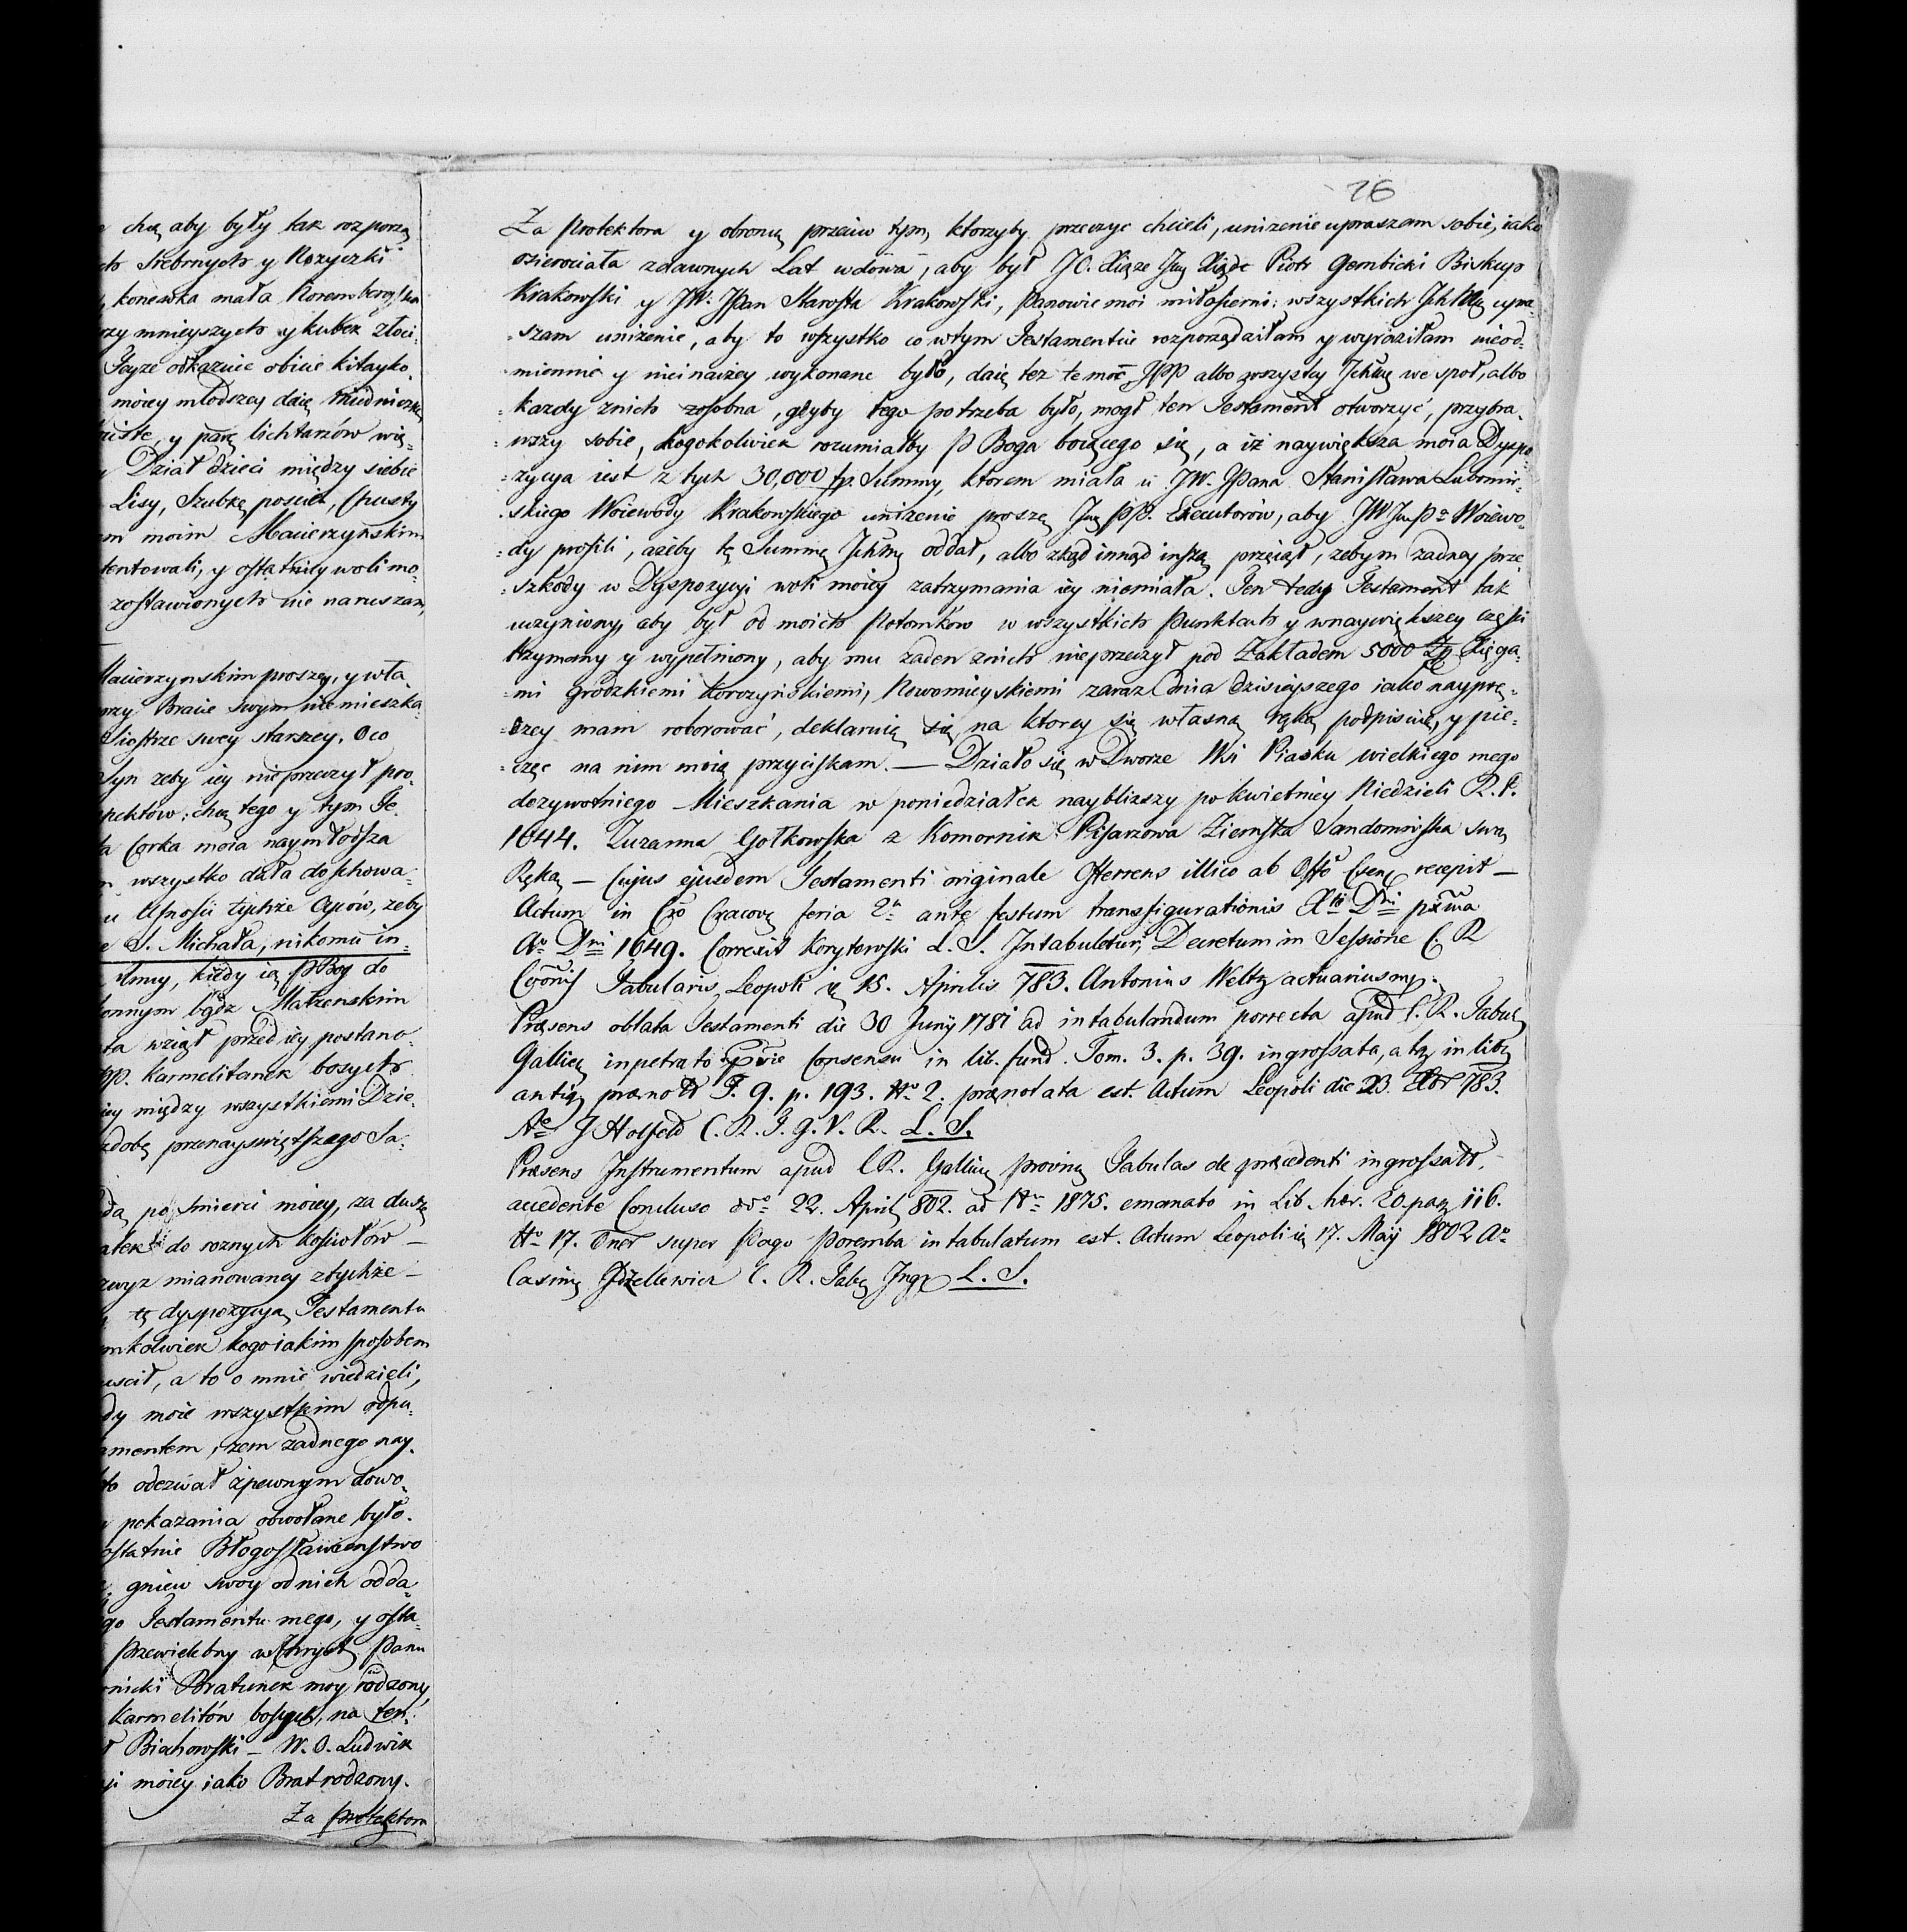 chcę aby były tak rozporzą
Srebrnych y Rozyczki
konewka mała Noremberg
mnieyszych y kubek złoci-
odkazuie obicie kitayko-
moiey młodszey daię Miednicę
y parę lichtarzów wię-
Dział dzieci między siebie
Lisy, Szubkę posciel, Chusty
moim Macierzyńskim
tentowali, y ostatniey woli mo-
zostawionych nie naruszam,
Macierzynskim proszę, y wła-
Bracie swym nie mieszka-
Siostrze swey starszey. O co
Syn zeby iey nie przeczył pro-
chcę tego y tym Te-
Corka moia naymłodsza
wszystko dała do schowa-
Ufnosci tychże Oyców, zeby
S. Michała, nikomu in-
kiedy ią P Bog do
bądz Małzenskim
wziął przed iey postano-
PP. Karmelitanek bosych
iey między wszystkiemi Dzie-
przenayswiętszego Sa-
po smierci moiey, za duszę
do roznych Kosciołów —
mianowaney ztychże —
tę dyspozycyą Testamentu
kogo iakim sposobem
a to o mnie wiedzieli,
moie wszystkim odpu-
zem zadnego nay-
odezwał zpewnym dowo-
pokazania odwołane było.
ostatnie Błogosławienstwo
gniew swoy od nich odda-
Testamentu mego, y osta-
Przewielebny w Chryst Panu
Bratunek moy rodzony,
Karmelitów bosych, na ten
Biechowski — W. O. Ludwik
moiey iako Brat rodzony.
Za protektora
26
Za Protektora y obroncę przeciw tym, ktorzyby przeczyc chcieli, unizenie upraszam sobie, iako
osierociała zdawnych Lat wdowa, aby był JO. Xiąze Jmę Xiądz Piotr Gembicki Biskup
Krakowski y JW. JPan Starosta Krakowski, Panowie moi miłosierni: wszystkich Jch Mę upra-
-szam unizenie, aby to wszystko co wtym Testamencie rozporządziłam y wyraziłam nieod-
-miennie y nieinaczey wykonane było, daię tez te moc JPP albo wszystcy Ichmę we społ, albo
kazdy znich zosobna, gdyby tego potrzeba było, mogł ten Testament otworzyć, przybra-
-wszy sobie, kogokolwiek rozumiałby P Boga boiącego się, a iż naywiększa moia Dyspo-
-zycya iest z tych 30,000 fp. Summy, ktorem miała u JW. JPana Stanisława Lubomir-
-skiego Woiewody Krakowskiego unizenie proszę Jmę PP. Executorów, aby JW Jm P. Woiewo-
-dy prosili, ażeby tę Summę Ichmę oddał, albo zkąd innąd inszą przeiął, zebym zadney prze-
-szkody w Dyspozycyi woli moiey zatrzymania iey niemiała. Ten tedy Testament tak
uczyniony, aby był od moich Potomków w wszystkich Punktach y wnaywiększey części
trzymany y wypełniony, aby mu zaden znich nieprzeczył pod Zakładem 5000 Zp Xięga-
-mi grodzkiemi Korczyńskiemi, Nowomieyskiemi zaraz dnia dzisieyszego iako nayprę-
-dzey mam roborować, deklaruię się, na ktorey się własną ręką podpisuię, y pie-
-częc na nim moię przyciskam. — Działo się w Dworze Wsi Piasku wielkiego mego
dozywotniego Mieszkania w poniedziałek nayblizszy po kwietniey Niedzieli R. P.
1644. Zuzanna Gołkowska z Komornik Pisarzowa Ziemska Sandomirska swą
Ręką — Cujus ejusdem Testamenti originale Offerens illico ab Offo Csensi recepit —
Actum in Cro Cracovę feria 2a antę festum transfigurationis Xti Dni pxma
Ao Dni 1649. Correxit Korytowski L. S. Intabuletur; Decretum in Sessione C. R
Tabularis Leopoli 15. Aprilis 783. Antonius Weltz actuarius mp.
Præsens oblata Testamenti die 30 Junij 1781 ad intabulandum porrecta apud C. R. Tabul
Gallicę inpetrato Consensu in lib. fund. Tom. 3. p. 39. ingrossata, atq in lib
antiq prænott T. 9. p. 193. No 2. prænotata est. Actum Leopoli die 23. Xbr 783.
J Holfeld C. R. T. G. V. R. L. S.
Præsens Instrumentum apud CR. Gallicę Provinę Tabulas de præcedenti ingrossatt.
accedente Concluso ddo 22. April 802. ad No 1875. emanato in Lib. hær. 20. pag 116.
No 17. super Pago Poremba intabulatum est. Actum Leopoli 17. Maij 1802 Ao
Casimę C. R. Tabę Ingr L. S.